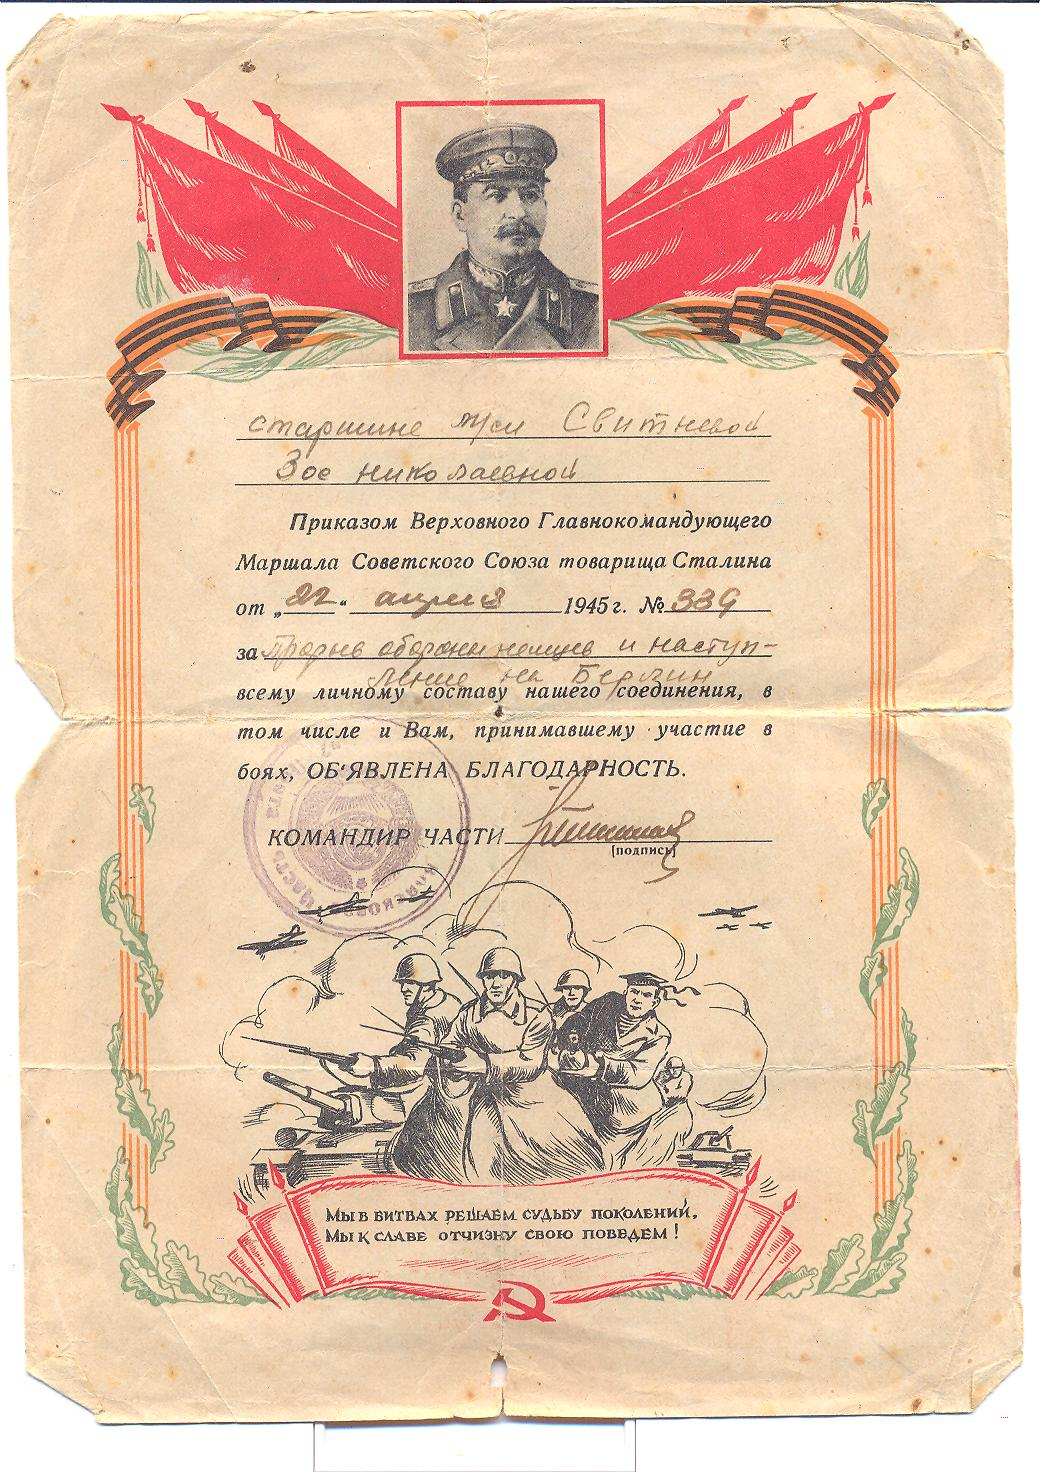 старшине м/сл Свитневой
Зое Николаевной
Приказом Верховного Главнокомандующего
Маршала Советского Союза товарища Сталина
от „22“ апреля 1945 г. № 339
за прорыв обороны немцев и наступ-
ление на Берлин
всему личному составу нашего соединения, в
том числе и Вам, принимавшему участие в
боях, ОБ'ЯВЛЕНА БЛАГОДАРНОСТЬ.
КОМАНДИР ЧАСТИ
(подпись)
Мы в битвах решаем судьбу поколений,
Мы к славе отчизну свою поведем!